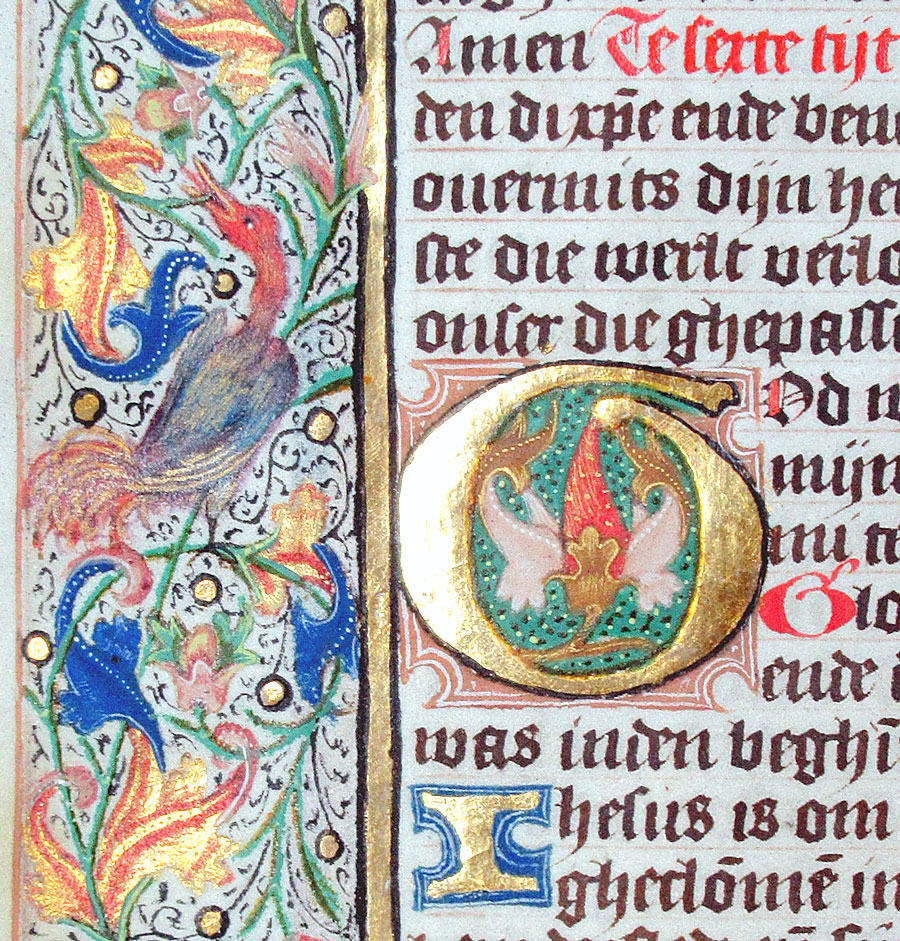 Amen Te sexte tijt
den di xp̄e ende ben
ouermits dijn hei
ste die werlt verlo
onser die ghepassi
God
mijn
mi te
Glo
ende
was inden beghī
Ihesus is om
gheclōmē in